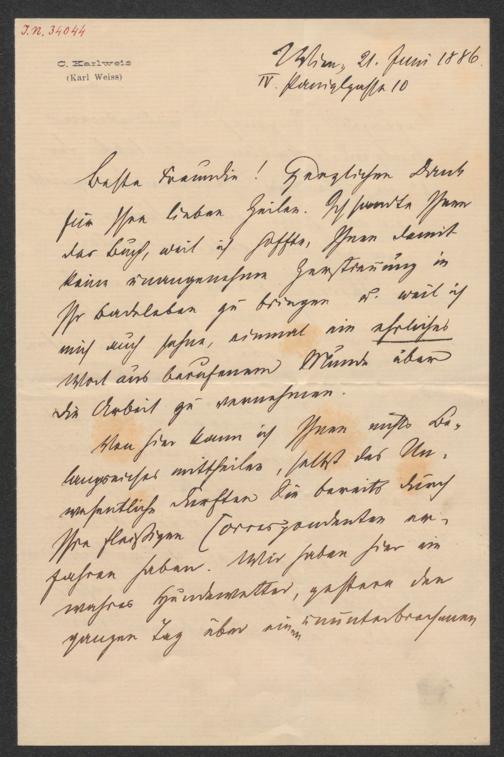 J.N. 34044
C. Karlweis
(Karl Weiss)
Wien, 21. Juni 1886.
IV. Paniglgasse 10
Beste Freundin! Herzlichen Dank
für Ihre lieben Zeilen. Ich sandte Ihnen
das Buch, weil ich hoffte, Ihnen damit
keine unangenehme Zerstreuung in
Ihr Badeleben zu bringen u. weil ich
mich auch sehne, einmal ein ehrliches
Wort aus berufenem Munde über
die Arbeit zu vernehmen.
Von hier kann ich Ihnen nichts Be-
langreiches mittheilen, selbst das Un-
wesentliche dürften Sie bereits durch
Ihre fleißigen Correspondenten er-
fahren haben. Wir haben hier ein
wahres Hundewetter, gestern den
ganzen Tag über einen ununterbrochenen